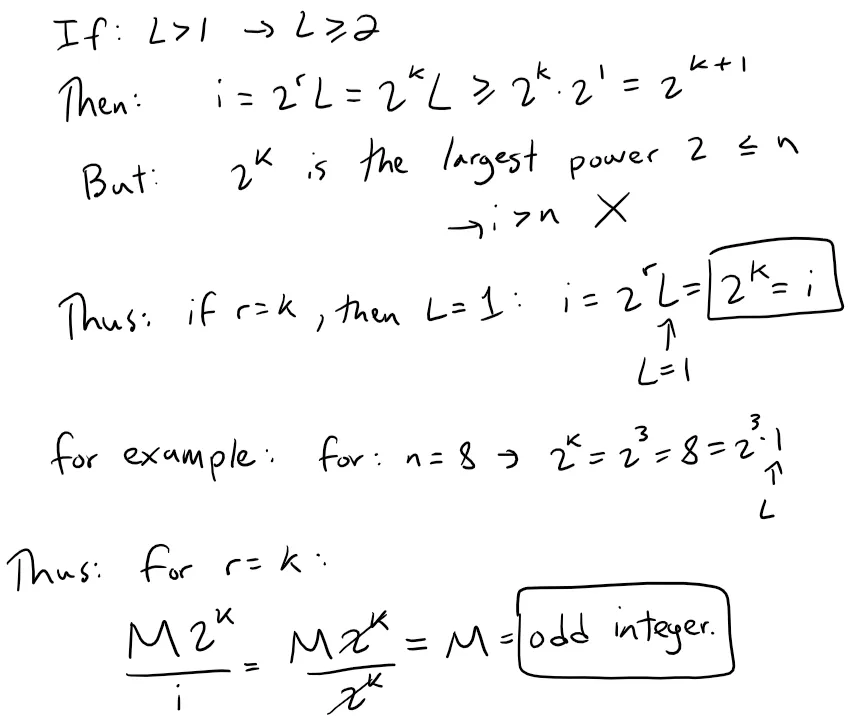 If: L>1 → L≥2
Then: i = 2^r L = 2^k L ≥ 2^k · 2^1 = 2^{k+1}
But: 2^k is the largest power 2 ≤ n
→ i > n X
Thus: if r=k, then L=1: i = 2^r L = 2^k = i
↑
L=1
for example: for: n=8 → 2^k = 2^3 = 8 = 2^3 · 1
↑
L
Thus: for r=k:
M2^k / i = M2^k / 2^k = M = odd integer.